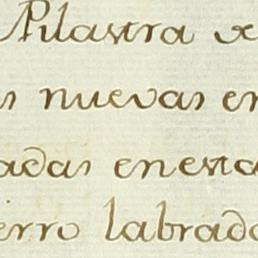 Pilastra de
s nuevas en
adas enesta
erro labrado